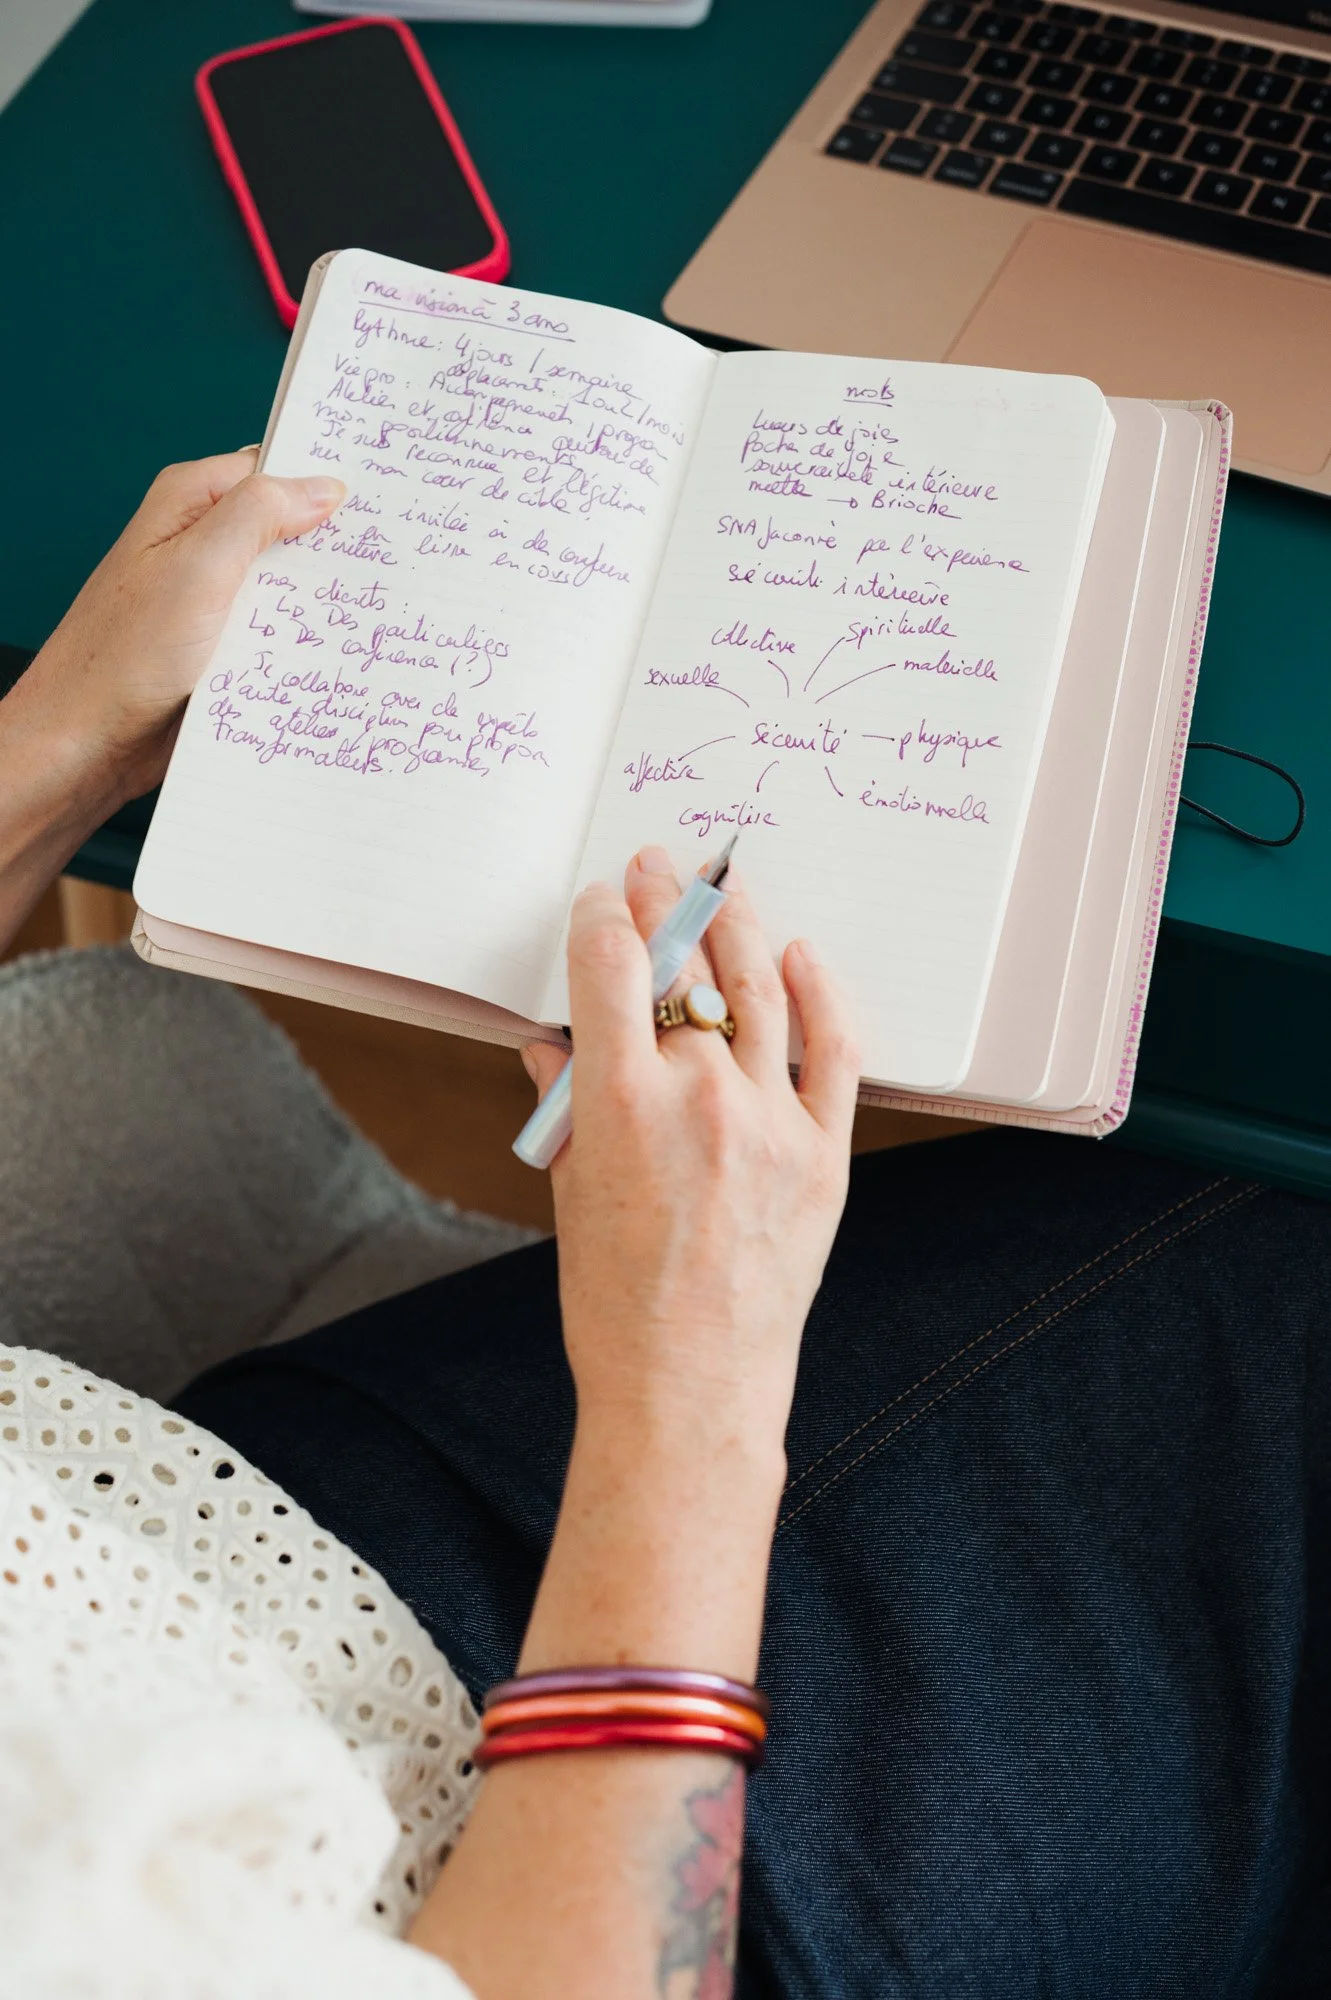 ma vision à 3 ans
Rythme : 4 jours / semaine
déplacements : 1 ou 2 / mois
Vie pro : Accompagnements / progra
Atelier et conférence autour de
mon positionnement
Je suis reconnue et légitime
sur mon cœur de cible !
suis invitée à de conférence
livre en cours
d'écriture.
mes clients :
↳ Des particuliers
↳ Des conférence (?)
Je collabore avec de experts
d'autre disciplines pour proposer
des atelier / programmes
transformateurs.
mots
Lueurs de joies
Poche de joie
souveraineté intérieure
→ Brioche
SNA façonné par l'expérience
sécurité intérieure
collective
spirituelle
sexuelle
matérielle
Sécurité
physique
affective
émotionnelle
cognitive